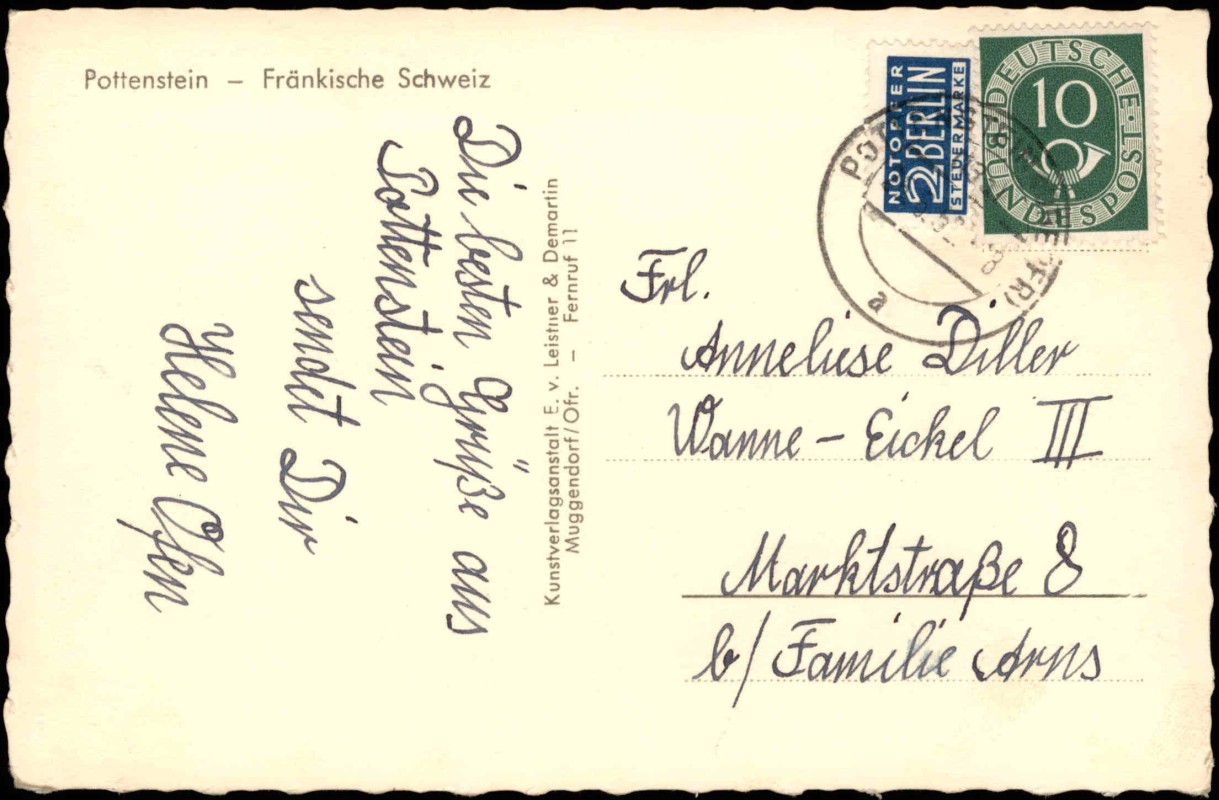 Pottenstein – Fränkische Schweiz
Die besten Grüße aus
Pottenstein
sendet Dir
Helene Ofen
Kunstverlagsanstalt E. v. Leistner & Demartin
Muggendorf/Ofr. – Fernruf 11
NOTOPFER
2 BERLIN
STEUERMARKE
DEUTSCHE BUNDESPOST
10
a
Frl.
Anneliese Diller
Wanne-Eickel III
Marktstraße 8
b/ Familie Arns